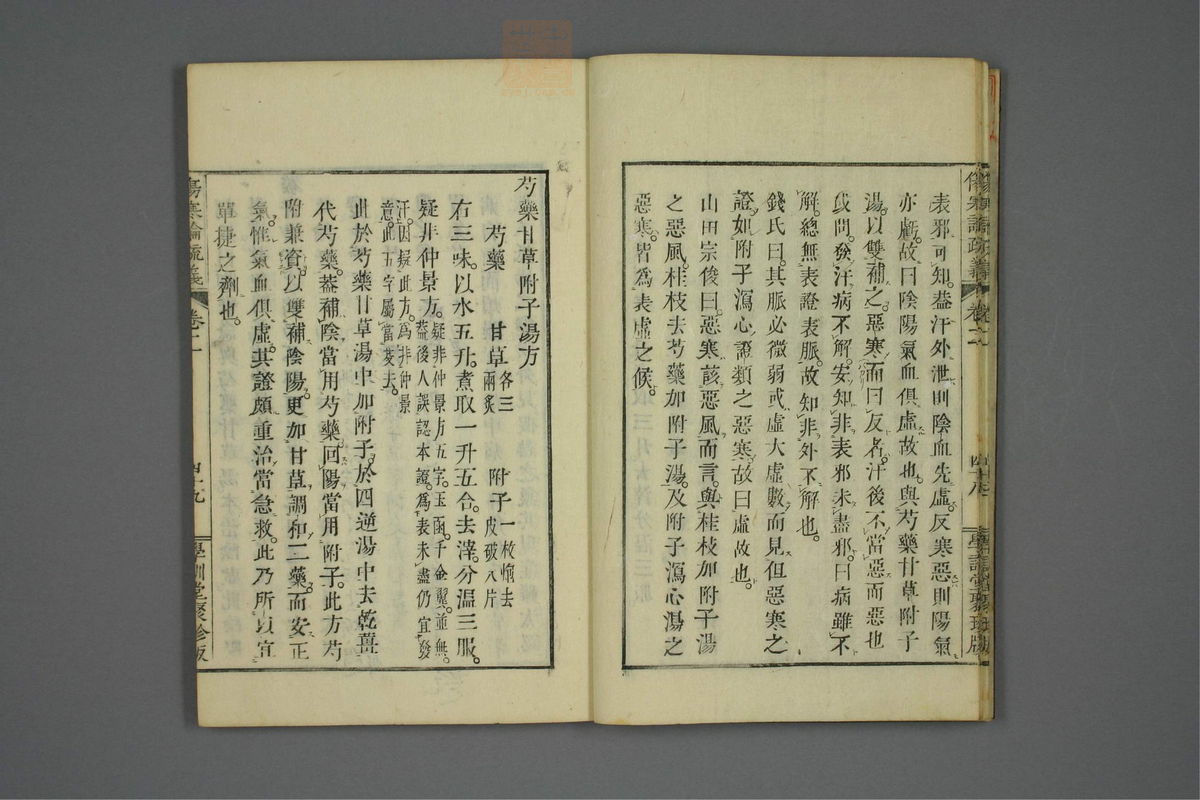 傷寒論疏義 卷之二 四十八 學訓堂聚珍版
表邪可知。葢汗外泄則陰血先虛。反寒惡則陽氣
亦虧。故曰陰陽氣血俱虛故也。與芍藥甘草附子
湯。以雙補之。惡寒而曰反者。汗後不當惡而惡也
或問。發汗病不解。安知非表邪未盡邪。曰病雖不
解。總無表證表脈。故知非外不解也。
錢氏曰。其脈必微弱或虛大虛數而見但惡寒之
證。如附子瀉心證類之惡寒。故曰虛故也。
山田宗俊曰。惡寒該惡風而言。與桂枝加附子湯
之惡風。桂枝去芍藥加附子湯。及附子瀉心湯之
惡寒。皆爲表虛之候。
芍藥甘草附子湯方
芍藥 甘草各三兩炙 附子一枚炮去皮破八片
右三味。以水五升。煮取一升五合。去滓。分温三服。
疑非仲景方。疑非仲景方五字。玉函。千金翼。並無。葢後人誤認本證。爲表未盡仍宜發
汗。因疑此方。爲非仲景意。此五字屬當芟去。
此於芍藥甘草湯中加附子。於四逆湯中去乾薑
代芍藥。葢補陰當用芍藥。回陽當用附子。此方芍
附兼資。以雙補陰陽。更加甘草調和二藥。而安正
氣。惟氣血俱虛。其證頗重治當急救。此乃所以宜
單捷之劑也。
傷寒論疏義 卷二 四十九 學訓堂聚珍版